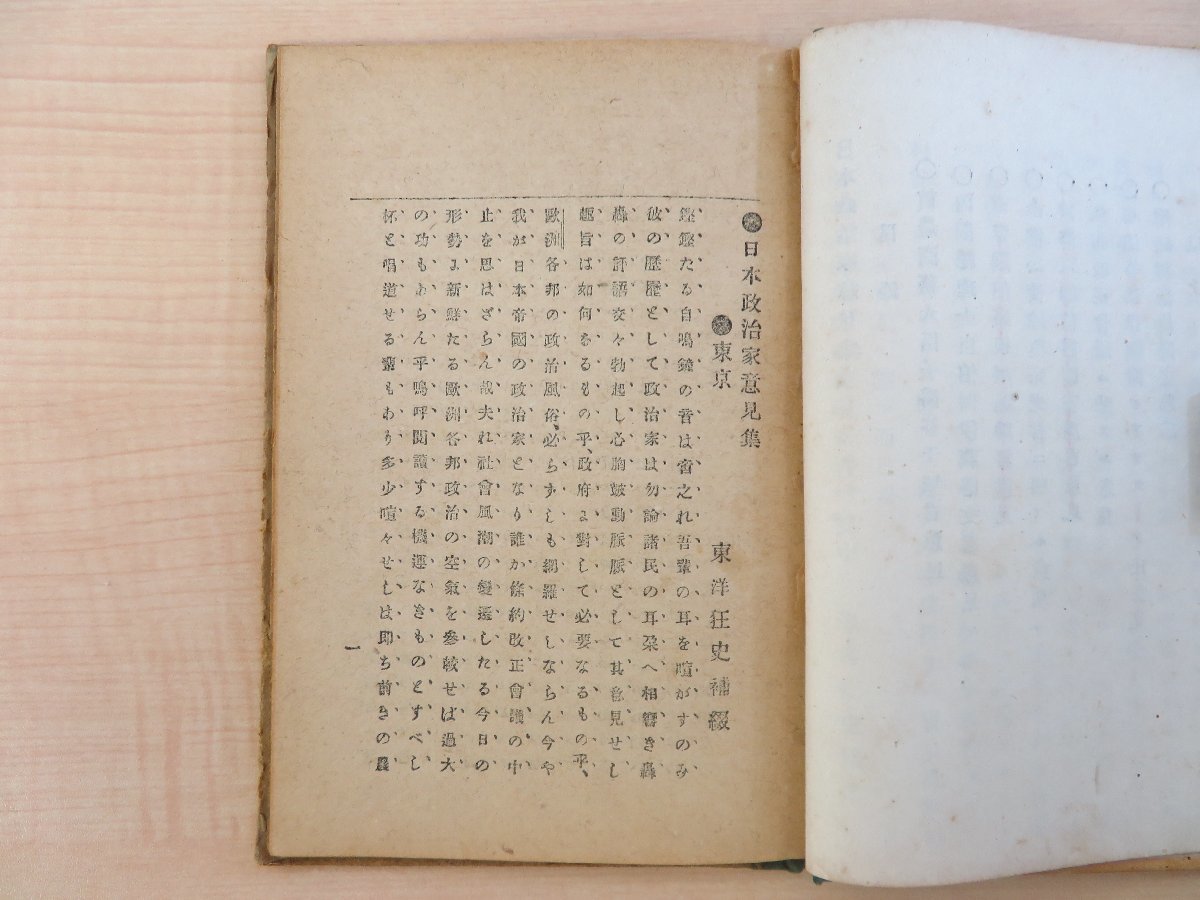 日本政治家意見集
東京 東洋狂史補綴
鏗鏗たる自鳴鐘の音は宙之れ吾輩の耳を喧がすのみ
彼の歴歴として政治家は勿論諸民の耳朶へ相響き轟
轟の評語交々勃起し心胸皷動脈脈として其意見せし
趣旨は如何なるもの乎、政府に對して必要なるもの乎、
歐洲各邦の政治風俗、必らずしも網羅せしならん今や
我が日本帝國の政治家となり誰か條約改正會議の中
止を思はざらん哉夫れ社會風潮の變遷したる今日の
形勢に新鮮たる歐洲各邦政治の空氣を參較せば過大
の功もあらん乎嗚呼閲讀する機運なきものとすべし
杯と唱道せる輩もあり多少喧々せしは即ち前きの農
一